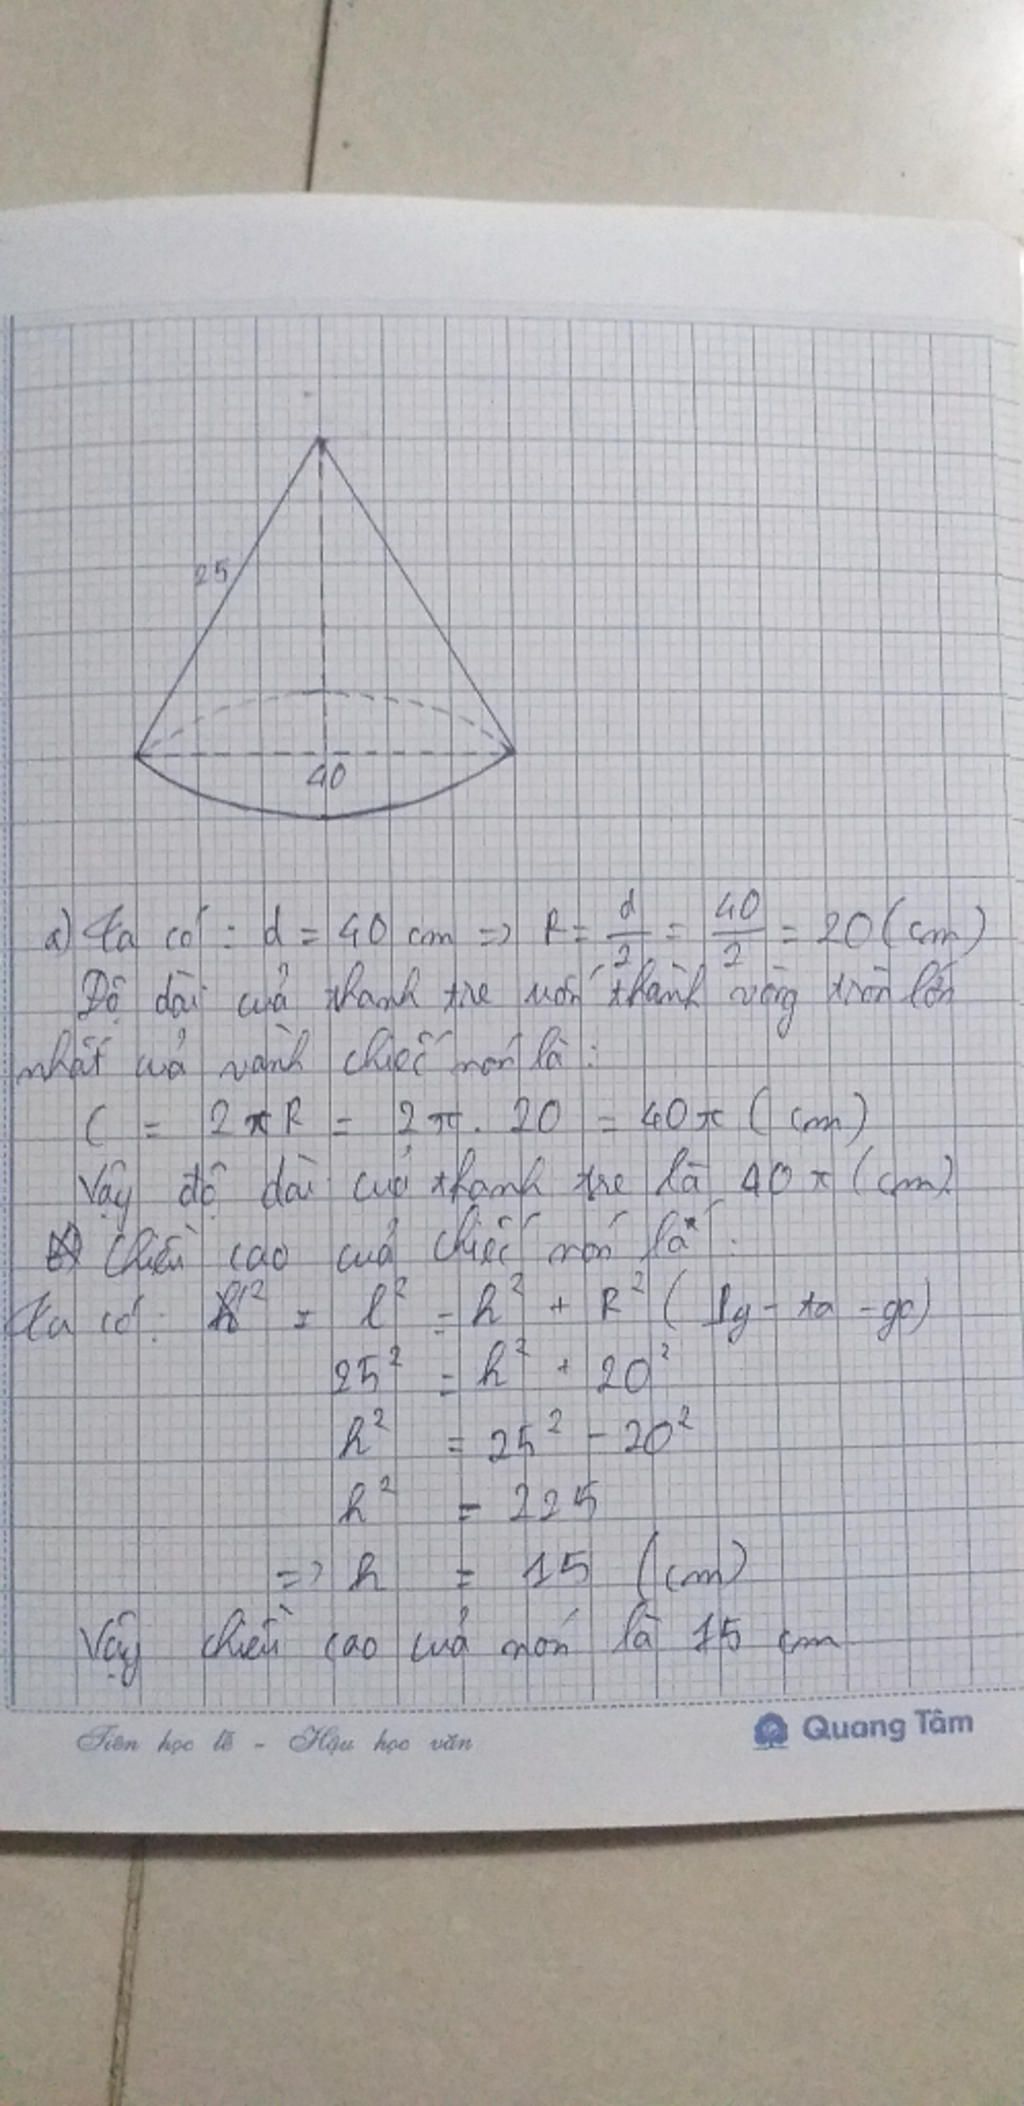 25
40
a) Ta có : d = 40 cm => R = d/2 = 40/2 = 20 (cm)
Độ dài của thanh tre uốn thành vòng tròn lớn
nhất của vành chiếc nón là :
C = 2πR = 2π . 20 = 40π (cm)
Vậy độ dài của thanh tre là 40π (cm)
Chiều cao của chiếc nón là :
Ta có : = l² = h² + R² (Py - ta - go)
25² = h² + 20²
h² = 25² - 20²
h² = 225
=> h = 15 (cm)
Vậy chiều cao của nón là 15 cm
Tiên học lễ - Hậu học văn
Quang Tâm